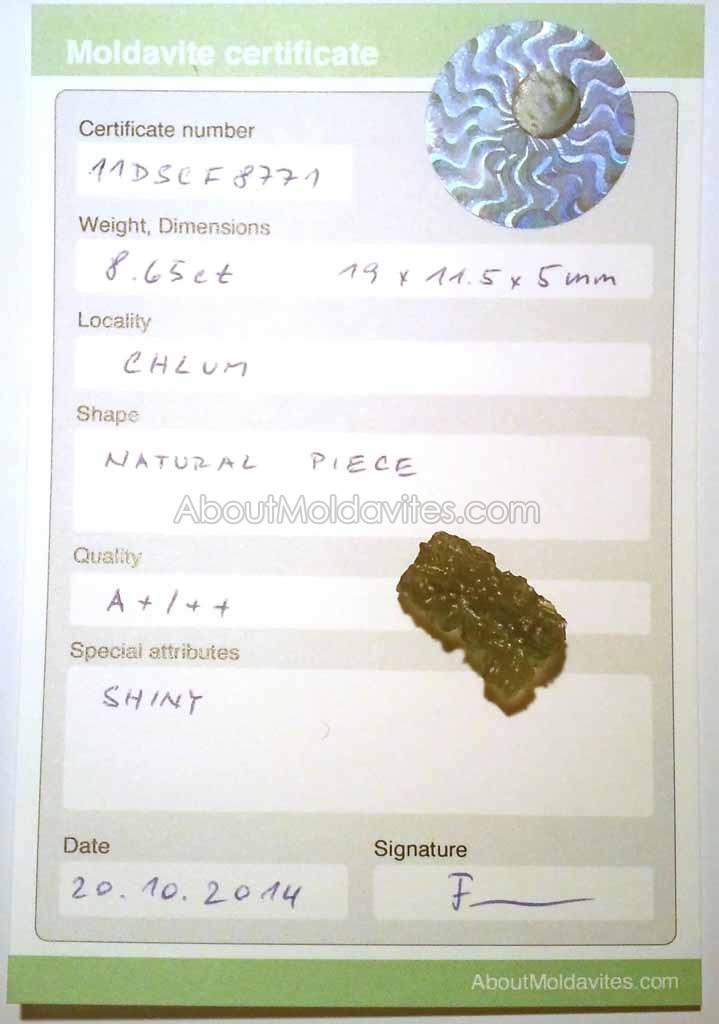 Moldavite certificate
Certificate number
11DSCF8771
Weight, Dimensions
8.65ct 19 x 11.5 x 5mm
Locality
CHLUM
Shape
NATURAL PIECE
AboutMoldavites.com
Quality
A+/++
Special attributes
SHINY
Date
Signature
20.10.2014
F
AboutMoldavites.com